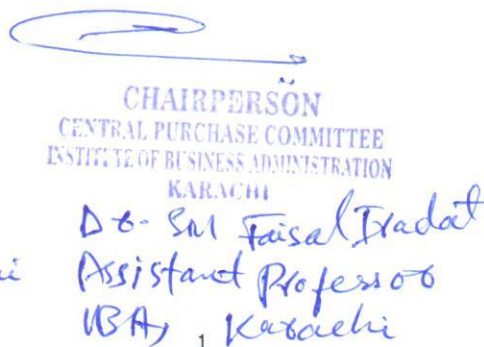 CHAIRPERSON
CENTRAL PURCHASE COMMITTEE
INSTITUTE OF BUSINESS ADMINISTRATION
KARACHI
Dr. SM Faisal Iradat
Assistant Professor
IBA, Karachi
1